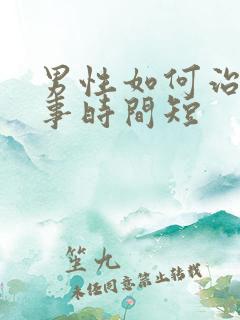 男性如何治
事時間短
笙九
未经同意禁止转载